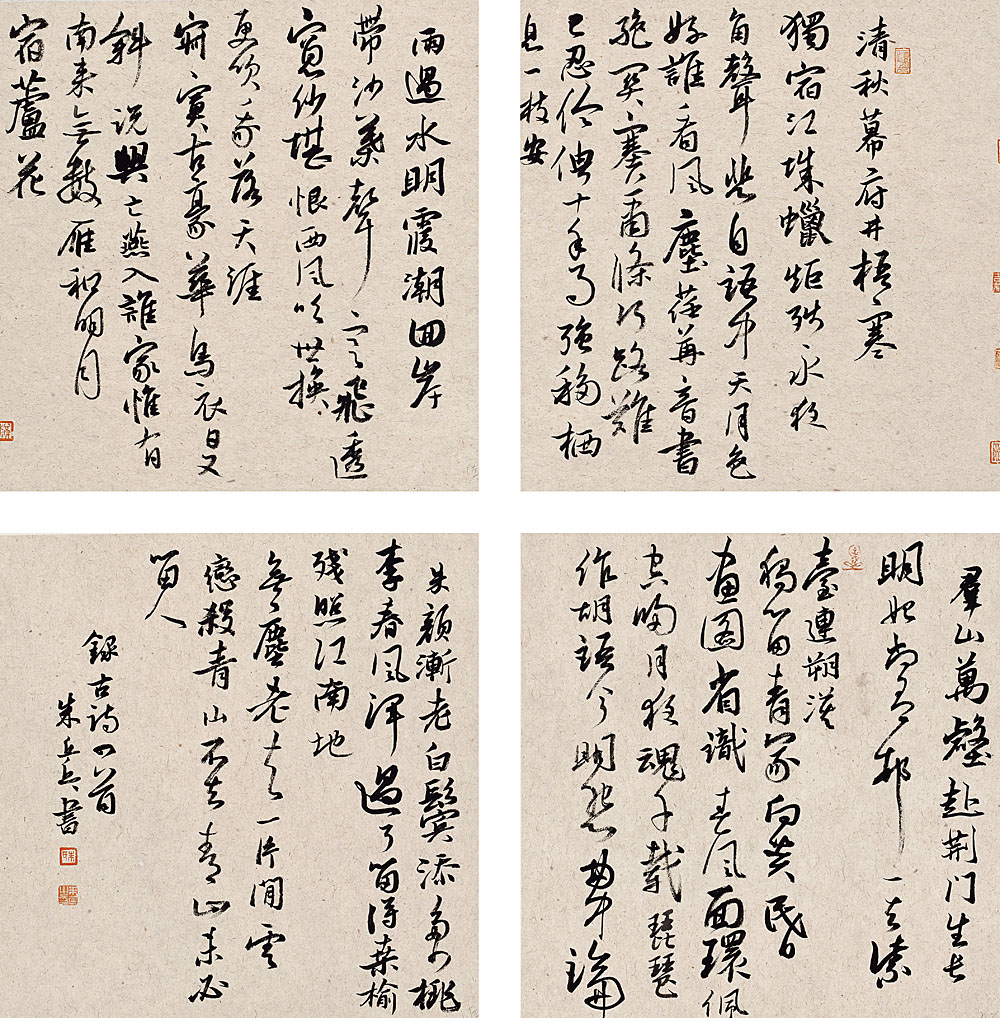 清秋幕府井梧寒
獨宿江城蠟炬殘永夜
角聲悲自語中天月色
好誰看風塵荏苒音書
絕關塞蕭條行路難
已忍伶俜十年事強移栖
息一枝安
雨過水明霞潮回岸
帶沙葉聲寒飛透
窗紗堪恨西風吹世換
更吹我落天涯
寂寞古豪華烏衣日又
斜說興亡燕入誰家惟有
南來無數雁和明月
宿蘆花
羣山萬壑赴荊門生長
明妃尚有村一去紫
臺連朔漠
獨留青冢向黃昏
畫圖省識春風面環佩
空歸月夜魂千載琵琶
作胡語分明怨曲中論
朱顏漸老白鬢添多少桃
李春風渾過了留得桑榆
殘照江南地
無塵老去一片閒雲
戀殺青山不去青山未必
留人
錄古詩四首
朱兵書